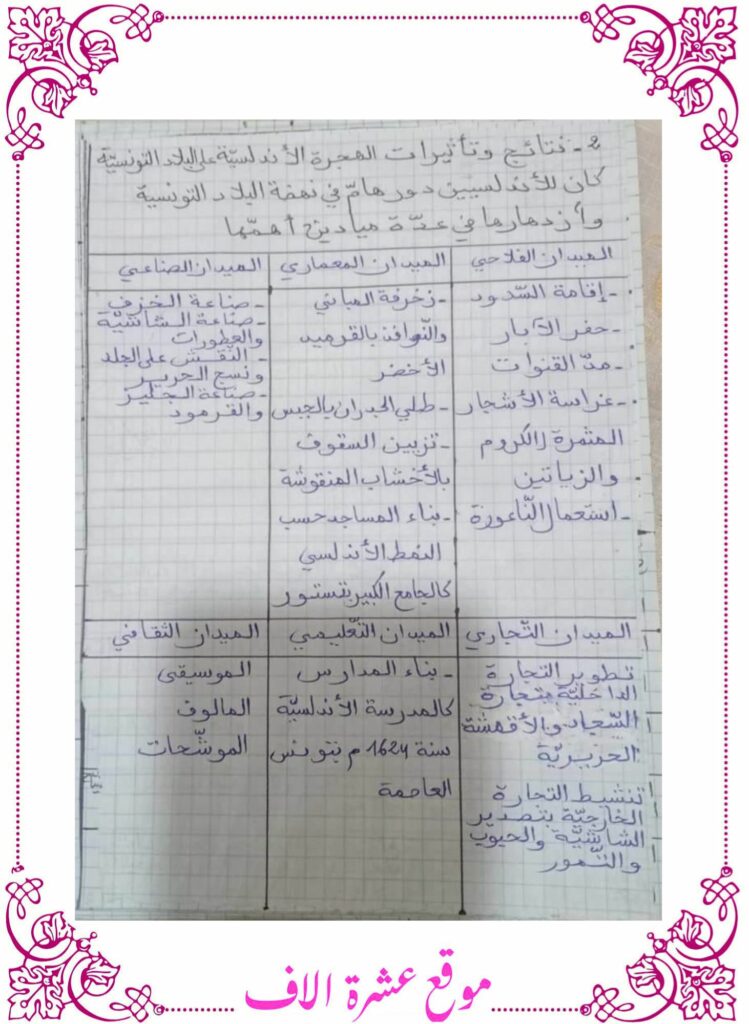 2 - نتائج وتأثيرات الهجرة الأندلسيّة على البلاد التونسيّة
كان للأندلسيين دور هامّ في نهضة البلاد التونسية
وأزدهارها في عدّة ميادين أهمّها
الميدان الفلاحي
- إقامة السّدود
- حفر الآبار
- مدّ القنوات
- غراسة الأشجار
المثمرة كالكروم
والزياتين
- استعمال النّاعورة
الميدان المعماري
- زخرفة المباني
والنّوافذ بالقرميد
الأخضر
- طلي الجدران بالجبس
- تزيين السقوف
بالأخشاب المنقوشة
- بناء المساجد حسب
النمط الأندلسي
كالجامع الكبير بتستور
الميدان الصناعي
- صناعة الخزف
- صناعة الشاشيّة
والعطورات
- النقش على الجلد
ونسج الحرير
- صناعة الجليز
والقرمود
الميدان التّجاري
تطوير التجارة
الداخليّة بتجارة
السّجاد والأقمشة
الحريريّة
تنشيط التجارة
الخارجيّة بتصدير
الشاشيّة والحبوب
والتّمور
الميدان التّعليمي
- بناء المدارس
كالمدرسة الأندلسيّة
سنة 1624 م بتونس
العاصمة
الميدان الثقافي
الموسيقى
المالوف
الموشّحات
موقع عشرة الاف